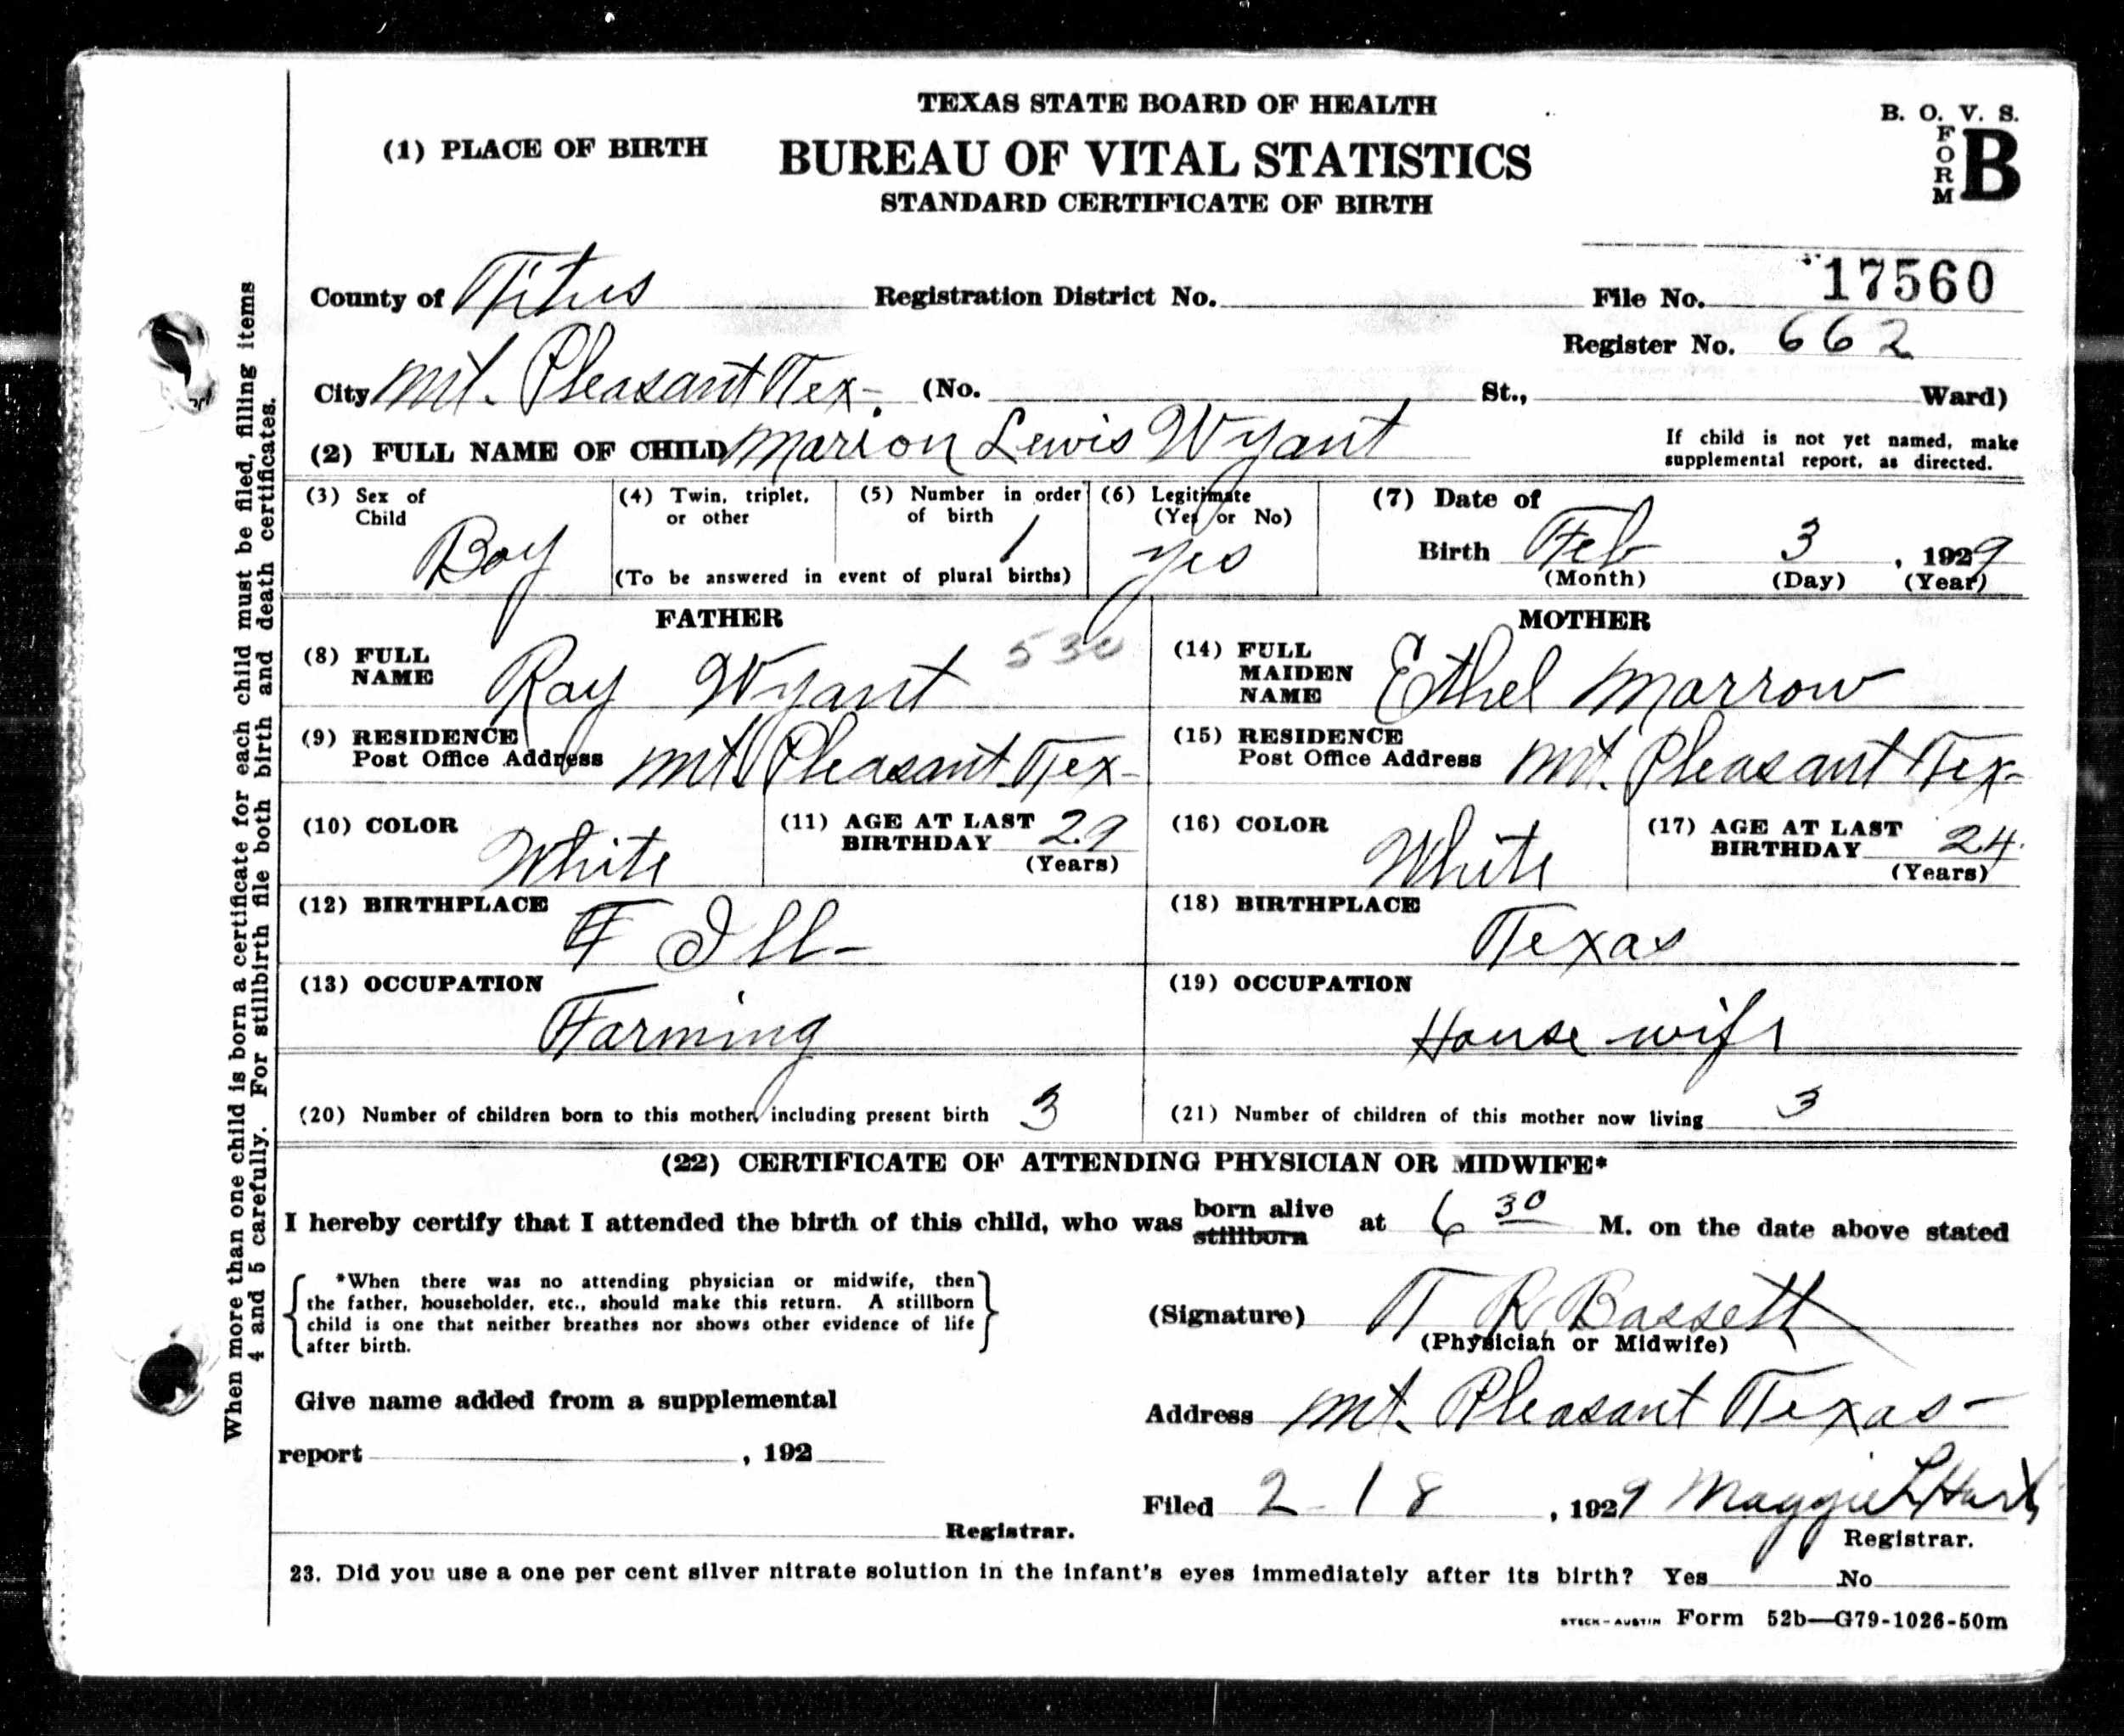 TEXAS STATE BOARD OF HEALTH
B. O. V. S.
FORM B
(1) PLACE OF BIRTH
BUREAU OF VITAL STATISTICS
STANDARD CERTIFICATE OF BIRTH
County of Titus Registration District No. File No. 17560
Register No. 662
City Mt. Pleasant Tex. (No. St., Ward)
(2) FULL NAME OF CHILD Marion Lewis Wyant
If child is not yet named, make
supplemental report, as directed.
(3) Sex of Child Boy
(4) Twin, triplet, or other
(5) Number in order of birth 1
(To be answered in event of plural births)
(6) Legitimate (Yes or No) yes
(7) Date of
Birth Feb 3, 1929
(Month) (Day) (Year)
FATHER
(8) FULL NAME Ray Wyant
(9) RESIDENCE
Post Office Address Mt. Pleasant Tex-
(10) COLOR White
(11) AGE AT LAST BIRTHDAY 29
(Years)
(12) BIRTHPLACE Ill-
(13) OCCUPATION
Farming
MOTHER
(14) FULL MAIDEN NAME Ethel Marrow
(15) RESIDENCE
Post Office Address Mt. Pleasant Tex-
(16) COLOR White
(17) AGE AT LAST BIRTHDAY 24
(Years)
(18) BIRTHPLACE
Texas
(19) OCCUPATION
House wife
(20) Number of children born to this mother, including present birth 3
(21) Number of children of this mother now living 3
(22) CERTIFICATE OF ATTENDING PHYSICIAN OR MIDWIFE*
I hereby certify that I attended the birth of this child, who was born alive stillborn at 6 30 M. on the date above stated
*When there was no attending physician or midwife, then
the father, householder, etc., should make this return. A stillborn
child is one that neither breathes nor shows other evidence of life
after birth.
(Signature) T R Bassett
(Physician or Midwife)
Give name added from a supplemental
Address Mt. Pleasant Texas-
report , 192
Filed 2-18, 1929 Maggie L
Registrar.
Registrar.
23. Did you use a one per cent silver nitrate solution in the infant's eyes immediately after its birth? Yes No
STECK-AUSTIN Form 52b—G79-1026-50m
When more than one child is born a certificate for each child must be filed, filling items
4 and 5 carefully. For stillbirth file both birth and death certificates.